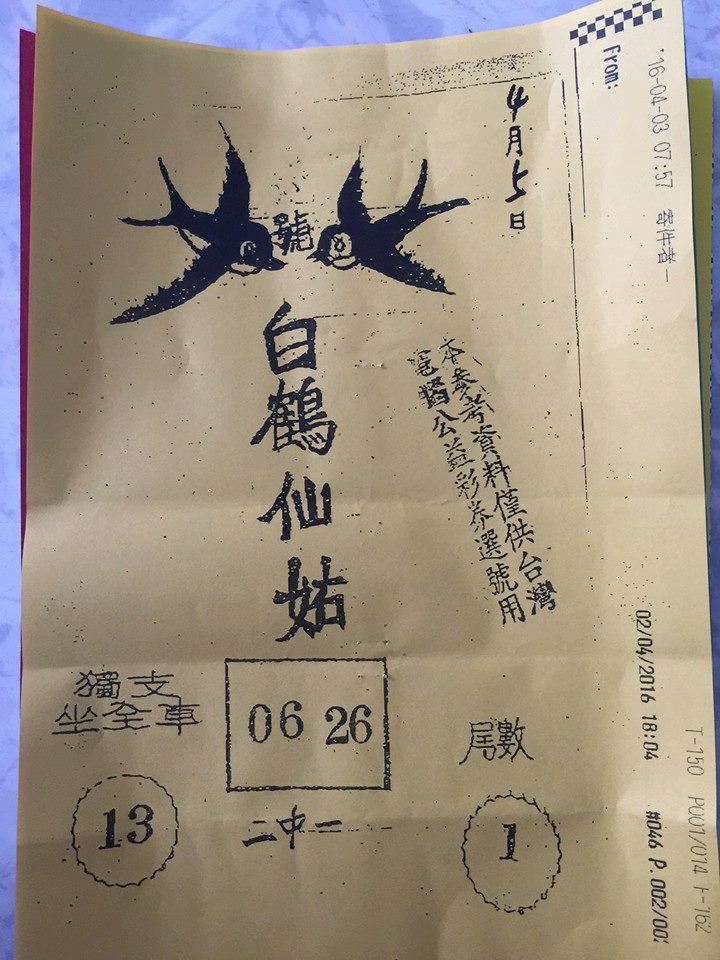 '16-04-03 07:57 寄件者-
T-150 P001/014 F-162
From:
02/04/2016 18:04
#046 P.002/00
4月5日
號
白鶴仙姑
本參考資料僅供台灣
電腦公益彩券選號用
獨支
坐全車
13
06 26
二中一
尾數
1